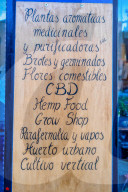 Plantas aromáticas
medicinales
y purificadoras
Brotes y germinados
Flores comestibles
CBD
Hemp Food
Grow Shop
Parafernalia y vapos
Huerto urbano
Cultivo vertical